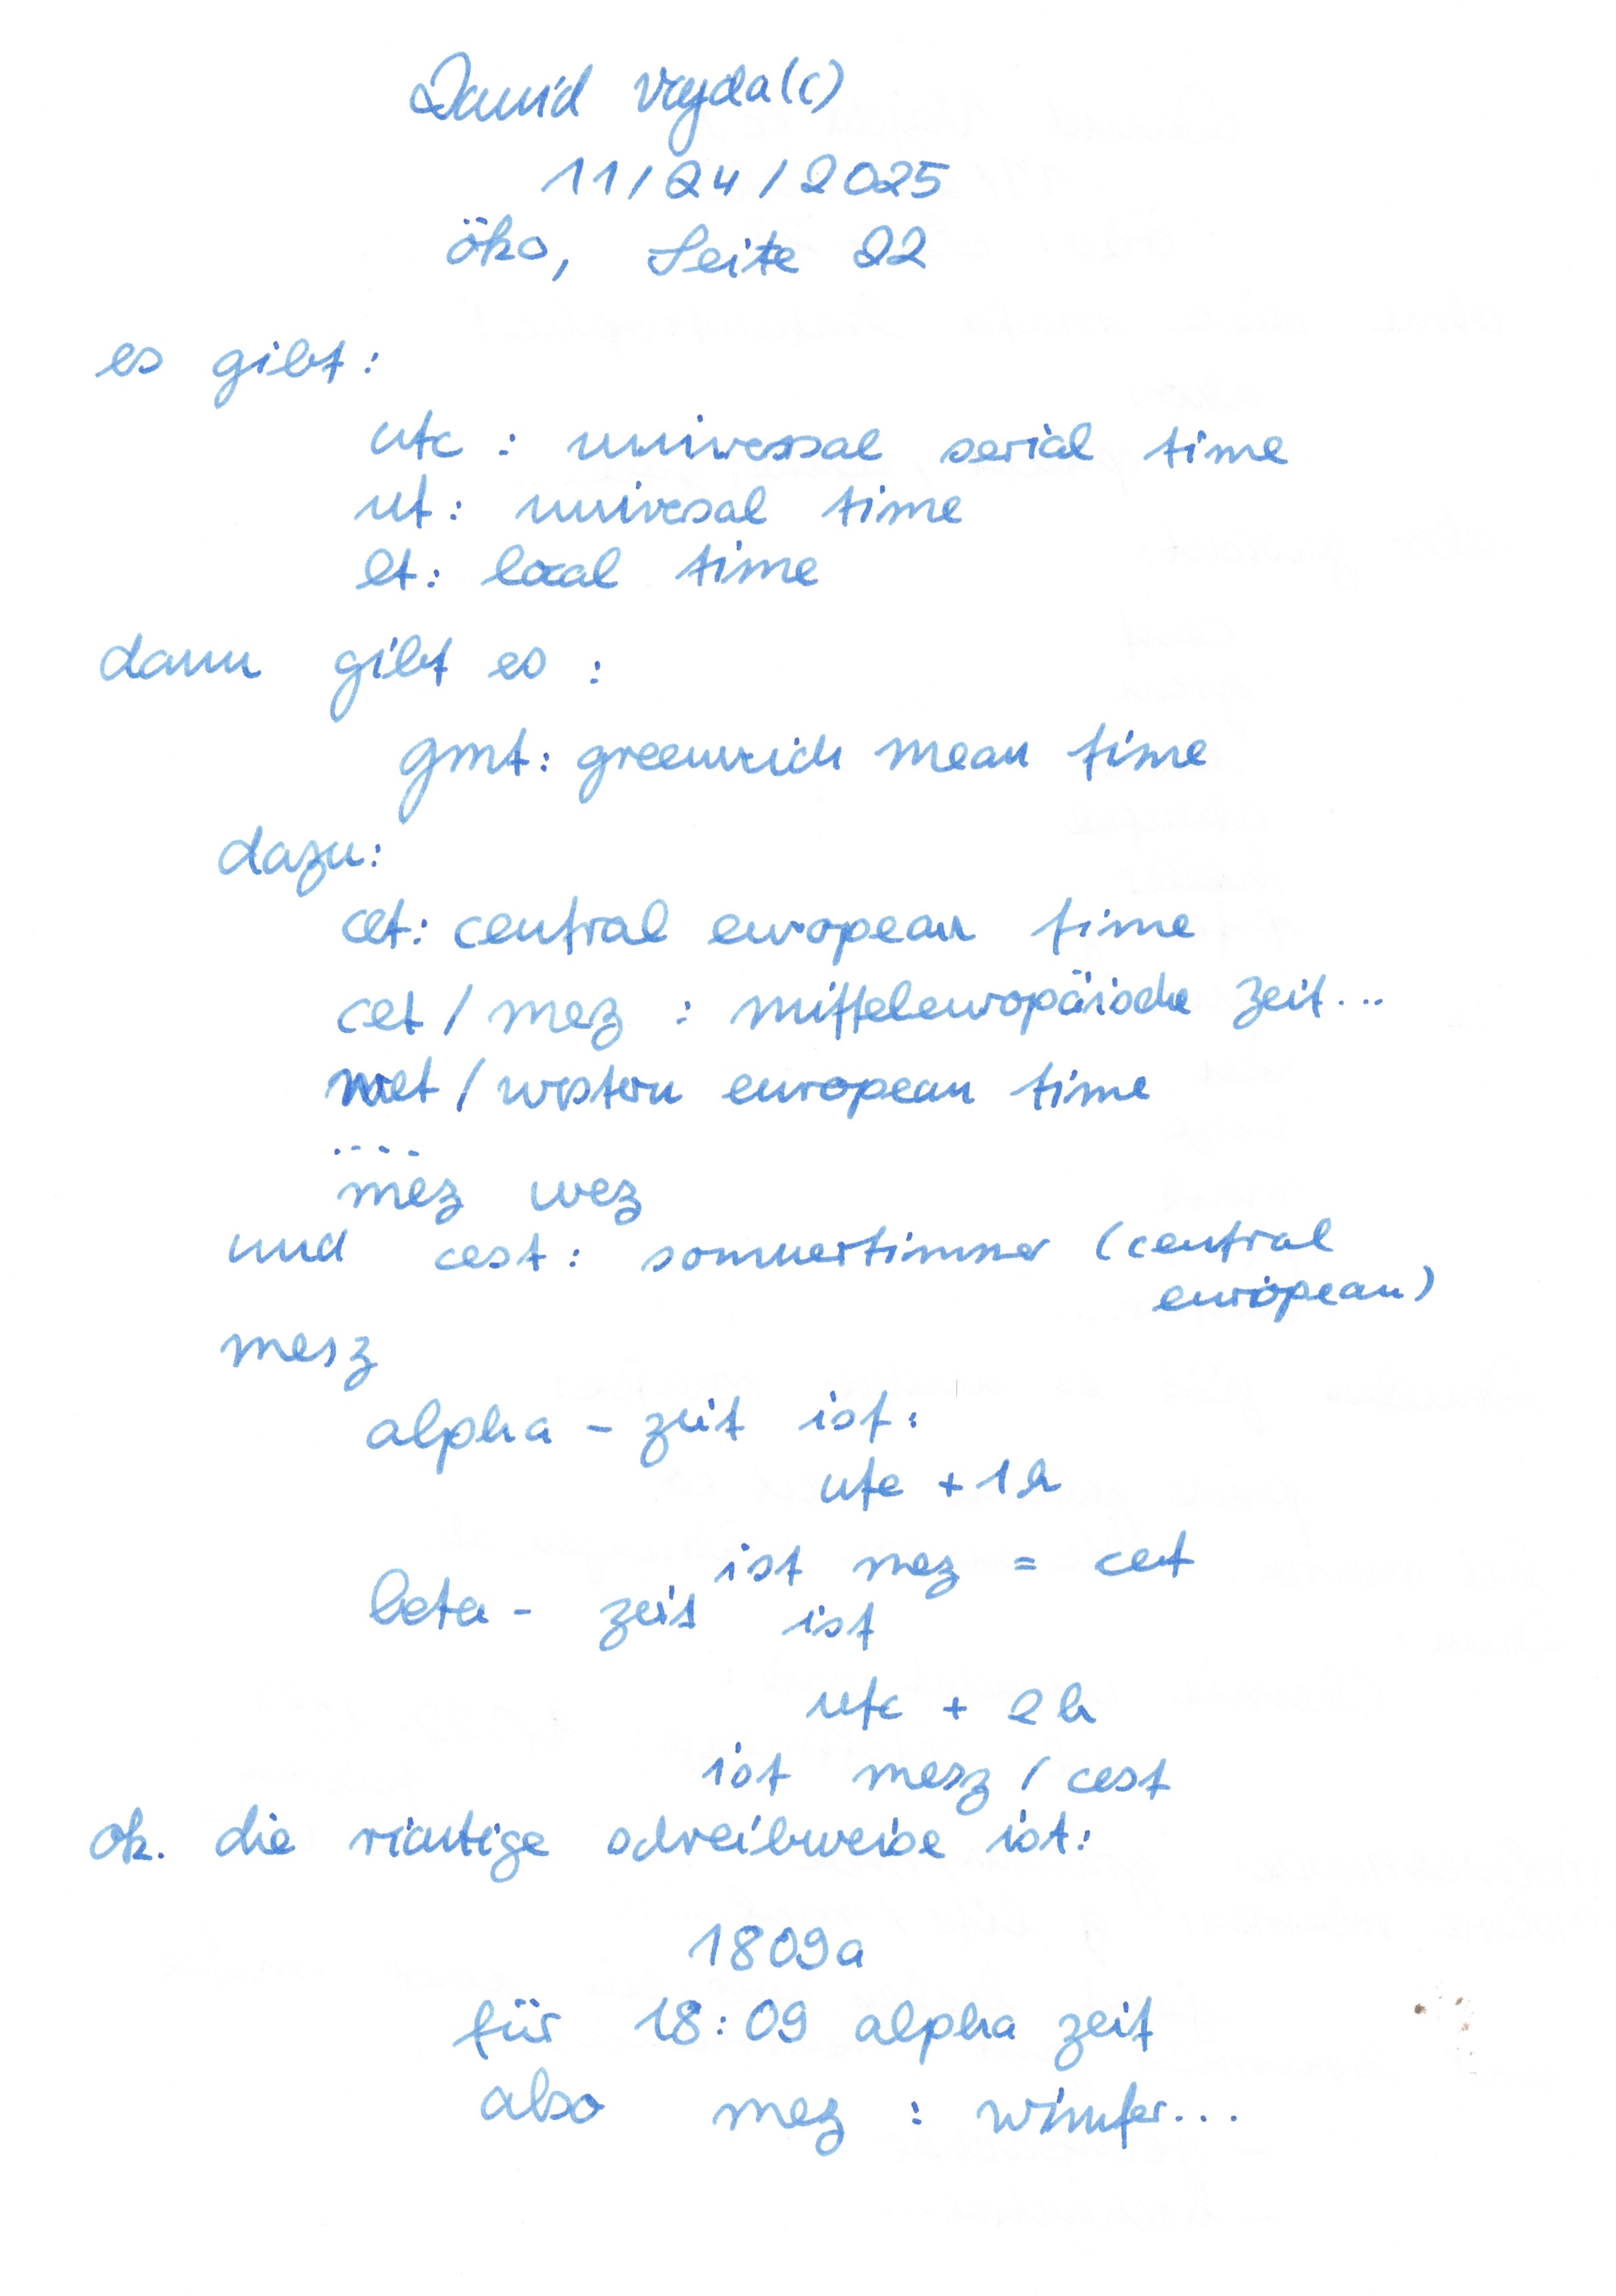 David Vajda (c)
11/24/2025
öko, Seite 22
es gibt:
utc : universal serial time
ut: univesal time
lt: local time
dann gibt es :
gmt: greenwich mean time
dazu:
cet: central european time
cet / mez : mitteleuropäische zeit...
wet / western european time
....
mez wez
und cest: sommertimmer (central
european)
mesz
alpha - zeit ist:
utc +1h
ist mez = cet
beta - zeit ist
utc + 2h
ist mesz / cest
ok. die richtige schreibweise ist:
1809a
für 18:09 alpha zeit
also mez : winter...